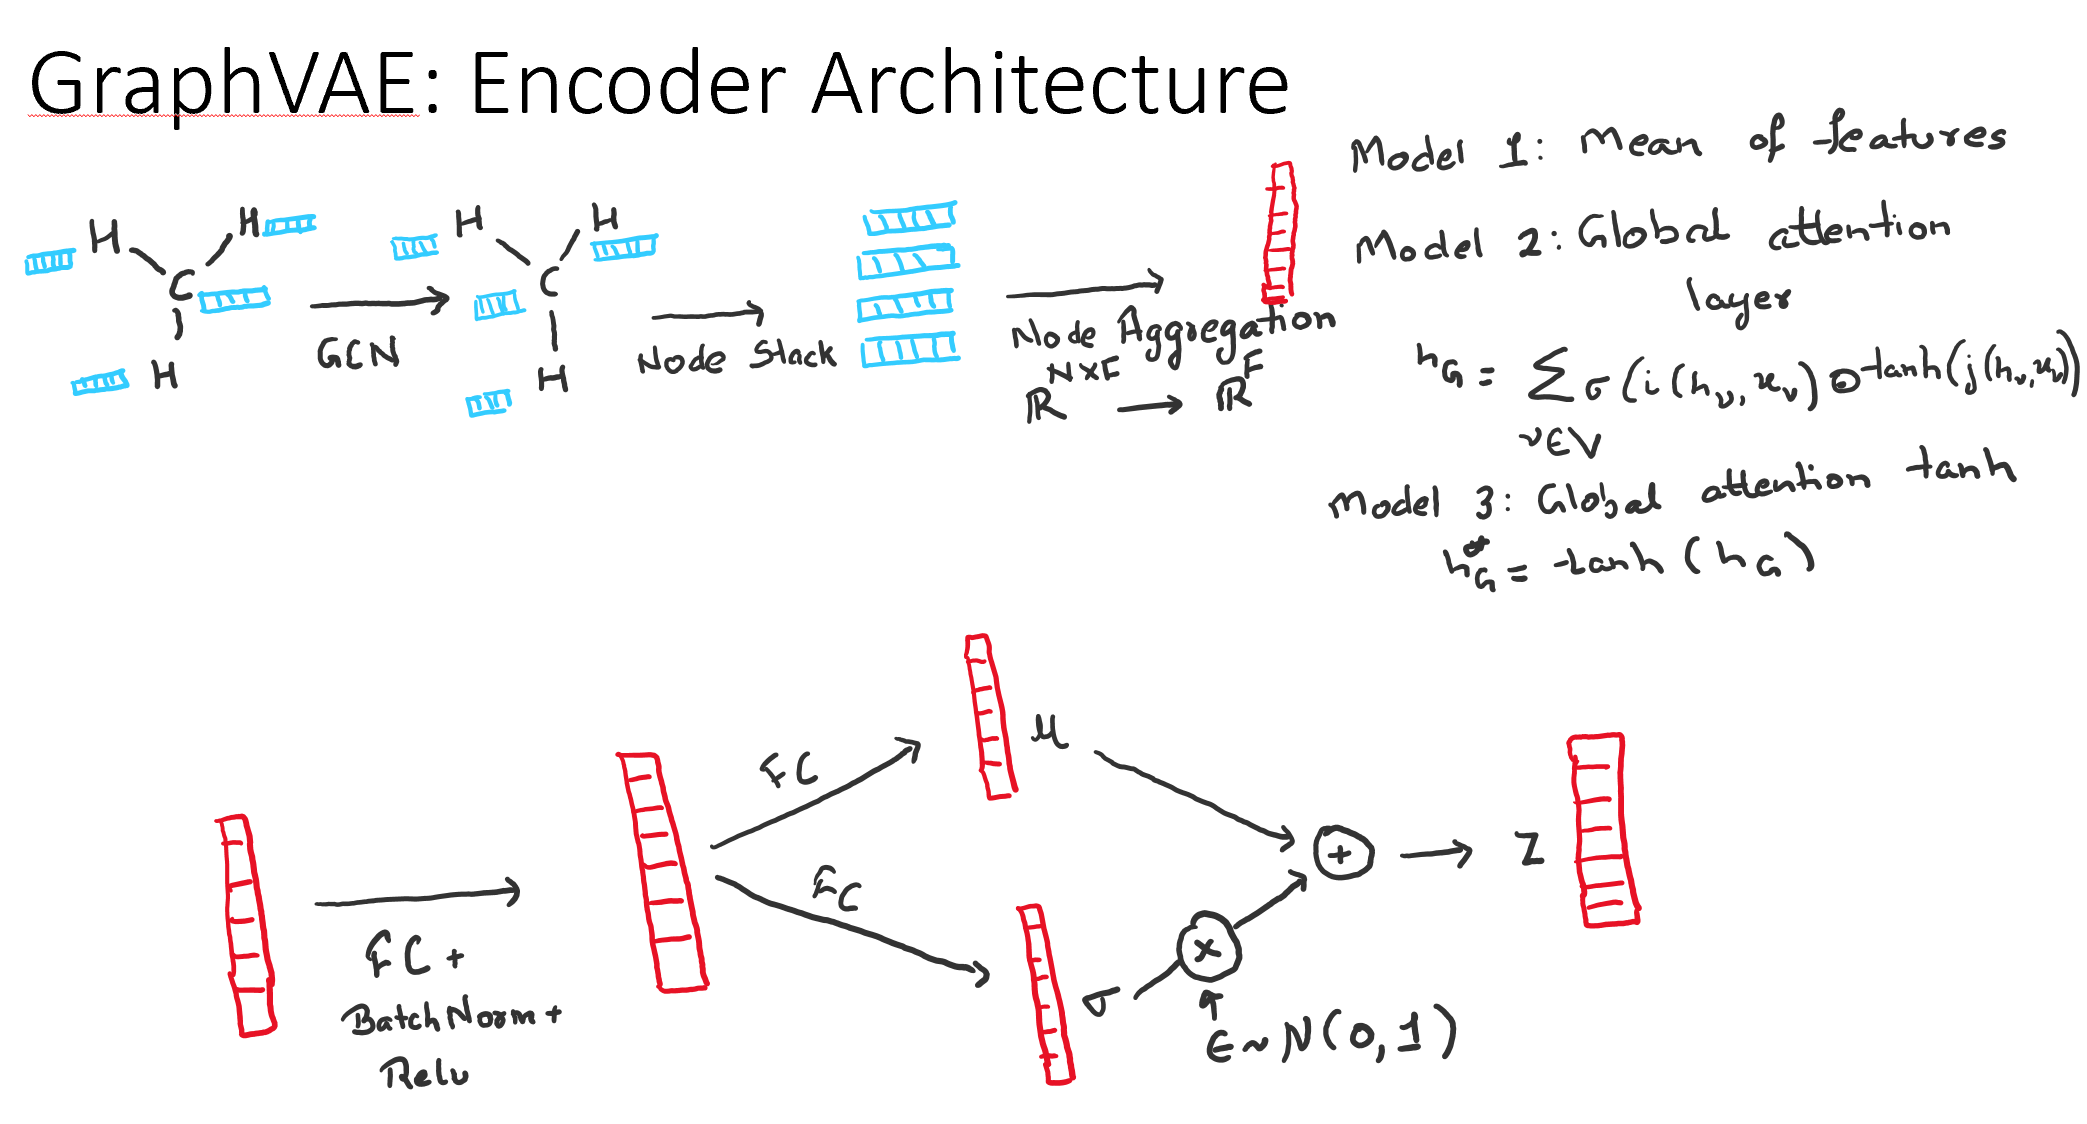 GraphVAE: Encoder Architecture
H H
C
H
GCN
H H
C
H
Node Stack
Node Aggregation
ℝ^{N×F} → ℝ^F
Model 1: Mean of features
Model 2: Global attention
layer
h_G = Σ_{v∈V} σ(i(h_v, x_v) ⊙ tanh(j(h_v, x_v))
Model 3: Global attention tanh
h*_G = tanh(h_G)
FC +
BatchNorm +
Relu
FC
FC
μ
σ
×
ϵ ~ N(0, 1)
+
Z